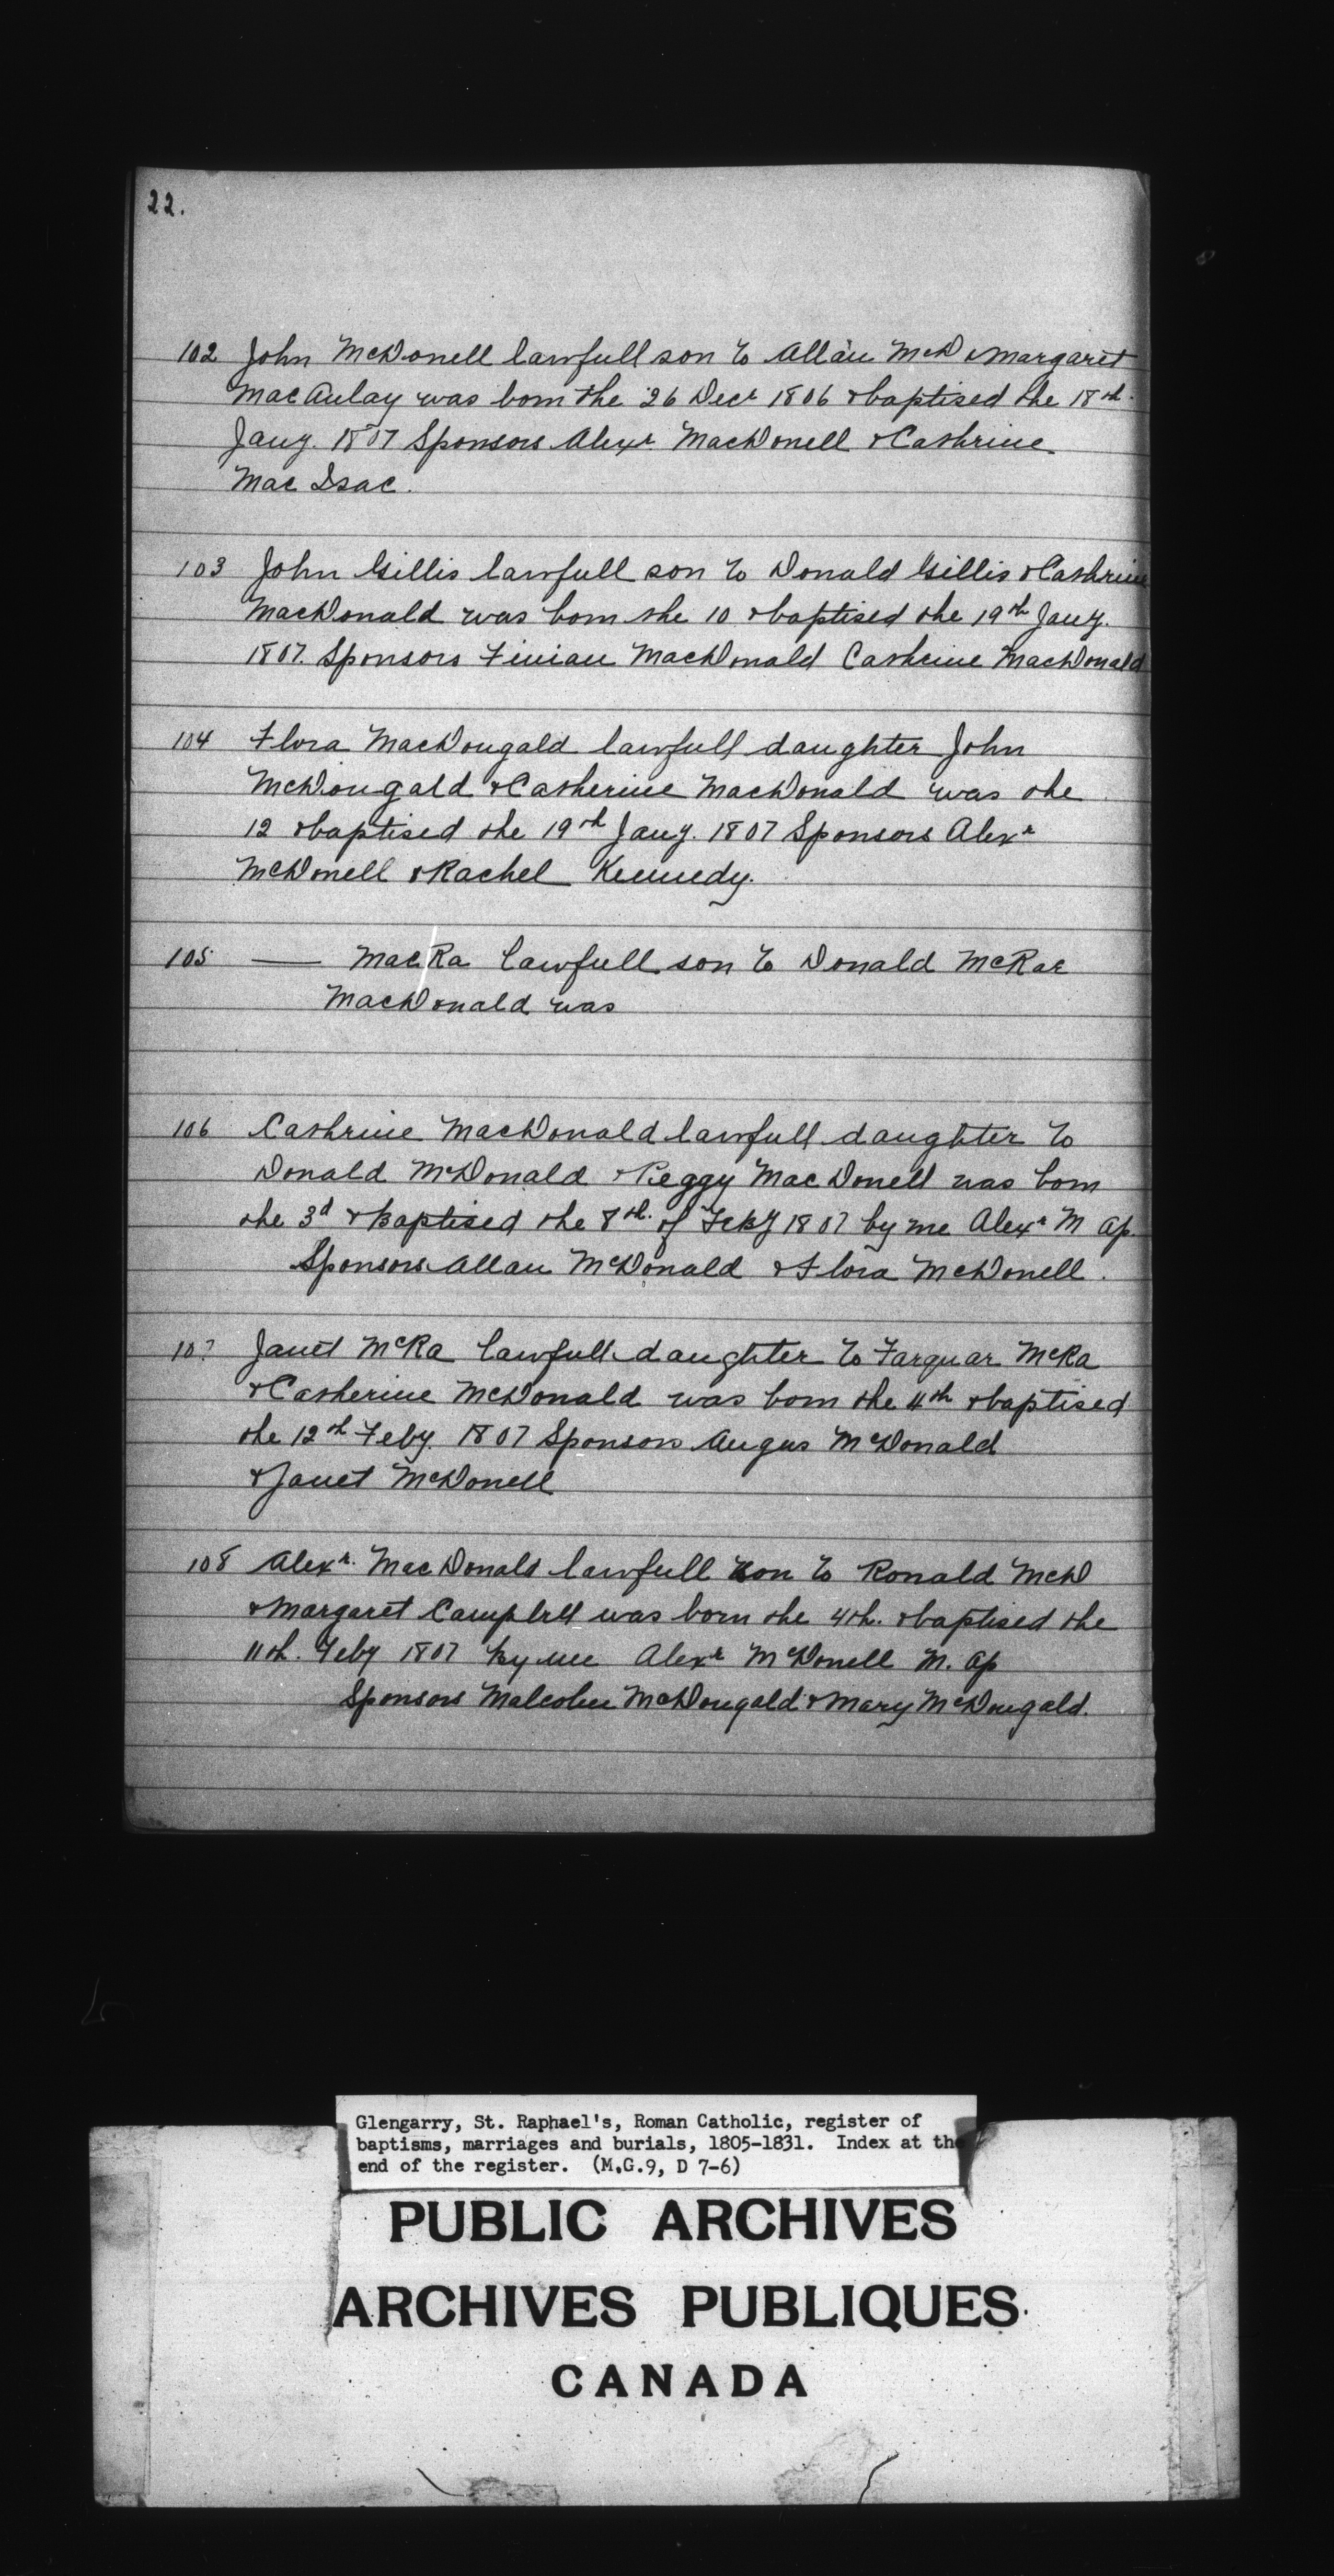 22.
102 John McDonell lawfull son to Allan McD & Margaret
MacAulay was born the 26 Decr 1806 & baptised the 18th
Jany. 1807 Sponsors Alexr. MacDonell & Cathrine
Mac Isac.
103 John Gillis lawfull son to Donald Gillis & Cathrine
MacDonald was born the 10 & baptised the 19th Jany.
1807. Sponsors Finian MacDonald Cathrine MacDonald
104 Flora MacDougald lawfull daughter John
McDougald & Catherine MacDonald was the
12 & baptised the 19th Jany. 1807 Sponsors Alexr
McDonell & Rachel Kennedy.
105 — MacRa lawfull son to Donald McRae
MacDonald was
106 Cathrine MacDonald lawfull daughter to
Donald McDonald & Peggy MacDonell was born
the 3d & Baptised the 8th. of Feby 1807 by me Alexr M Ap.
Sponsors Allan McDonald & Flora McDonell.
107 Janet McRa lawfull daughter to Farquar McRa
& Catherine McDonald was born the 4th & baptised
the 12th Feby. 1807 Sponsors Angus McDonald
& Janet McDonell
108 Alexr. MacDonald lawfull son to Ronald McD
& Margaret Campbell was born the 4th. & baptised the
11th. Feby 1807 by me Alexr McDonell M. Ap
Sponsors Malcolm McDougald & Mary McDougald.
Glengarry, St. Raphael's, Roman Catholic, register of
baptisms, marriages and burials, 1805-1831. Index at the
end of the register. (M.G.9, D 7-6)
PUBLIC ARCHIVES
ARCHIVES PUBLIQUES
CANADA